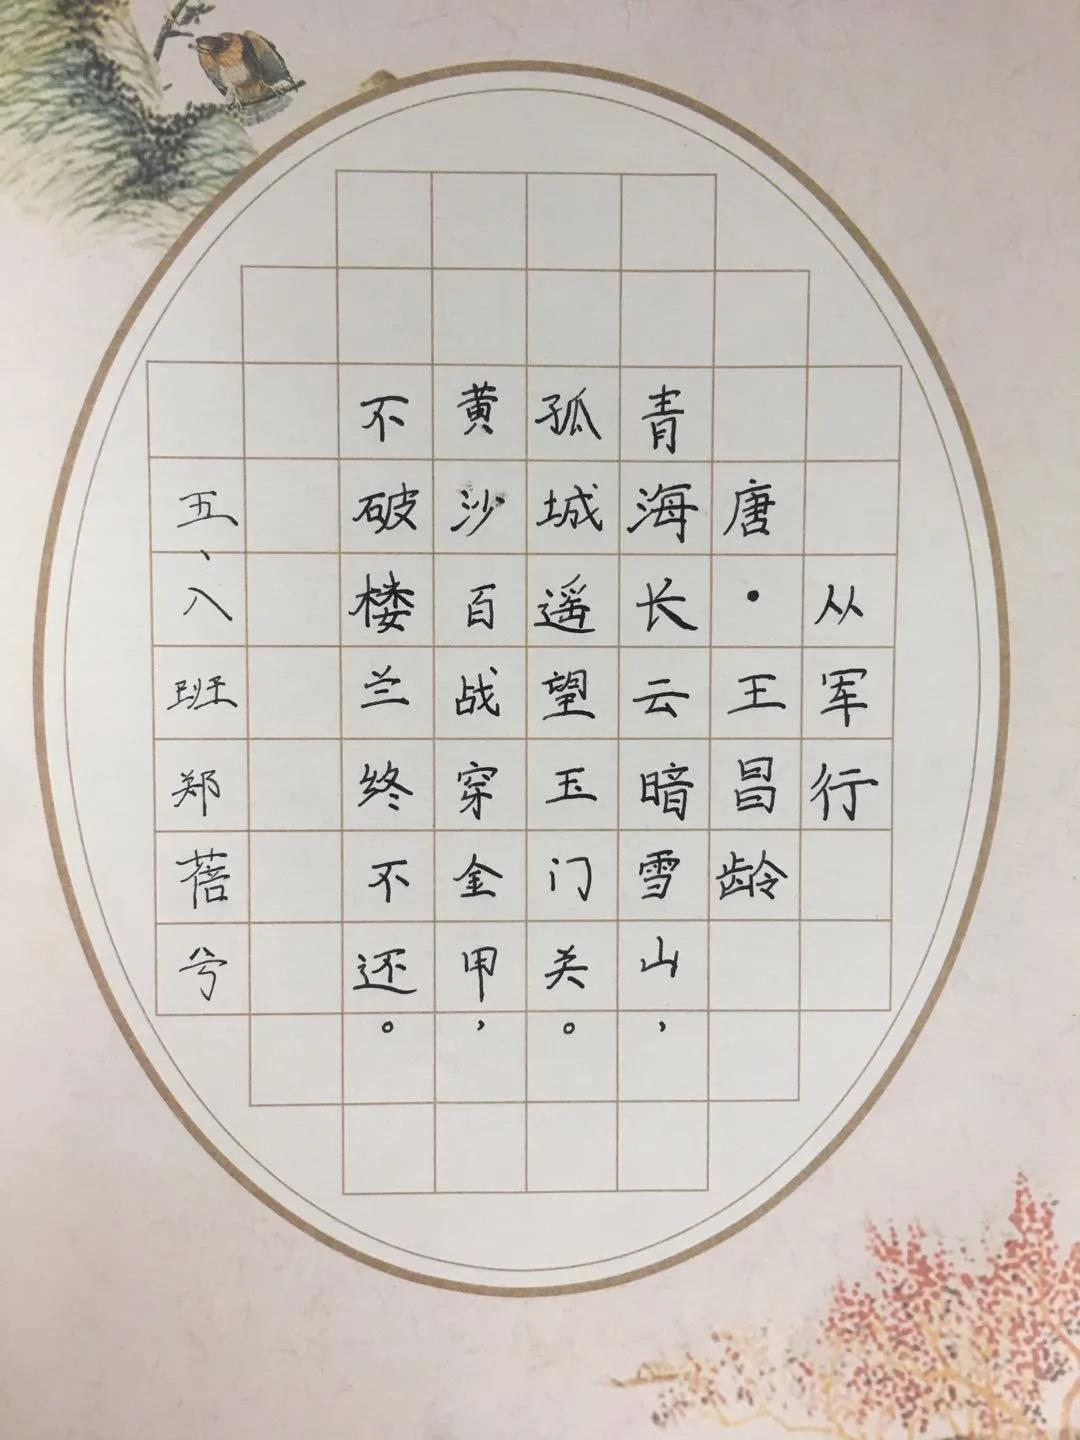 从军行
唐·王昌龄
青海长云暗雪山，
孤城遥望玉门关。
黄沙百战穿金甲，
不破楼兰终不还。
五、八班郑蓓兮